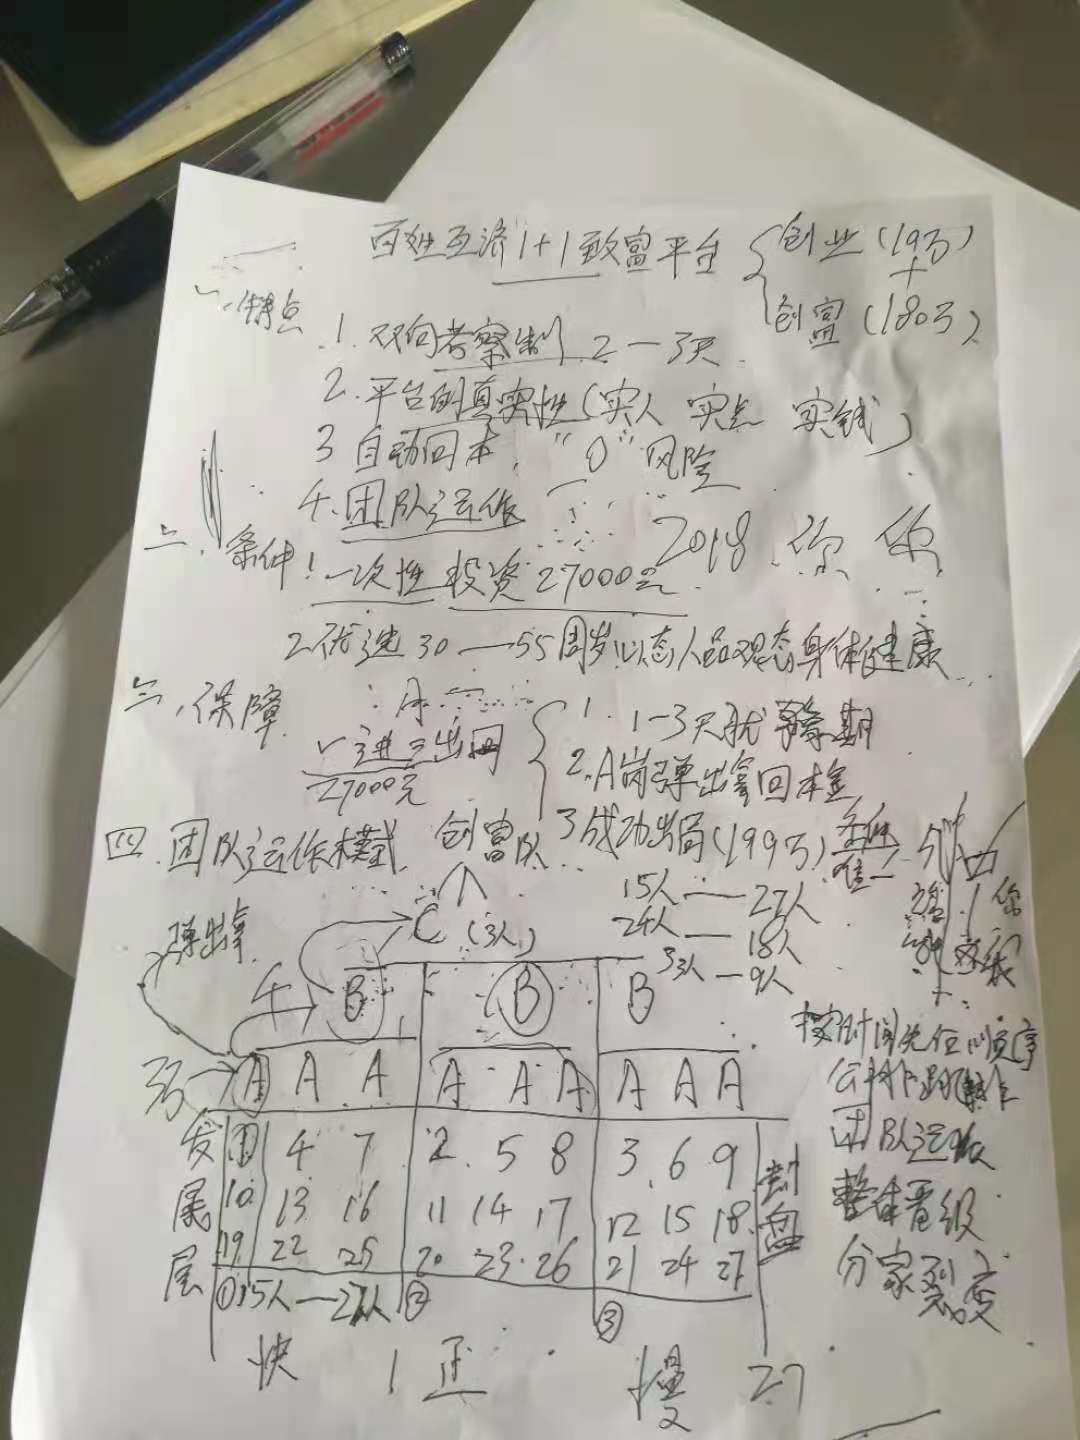 百姓互济1+1致富平台 { 创业(19万)
+
创富(180万)
一、特点
1. 双向考察制 2—3天
2. 平台的真实性(实人 实点 实钱)
3 自动回本, "0"风险
4. 团队运作
2018 你 你
二、条件1. 一次性投资27000元
2. 优选30—55周岁心态人品观态身体健康
三、保障
一进三出网
27000元
1. 1-3天犹豫期
2. A岗弹出拿回本金
3 成功出局(199万) 条件
唯一
四、团队运作模式 创富队
15人——27人
24人——18人
33人—9人
弹出拿
C (3人)
B B B
A A A A A A A A A
发 1 4 7 2 5 8 3 6 9 封
展 10 13 16 11 14 17 12 15 18 盘
层 19 22 25 20 23 26 21 24 27
①15人—27人 ② ③
按时间先后顺序
公排
团队运作
整体晋级
分家裂变
快 1 正 慢 27